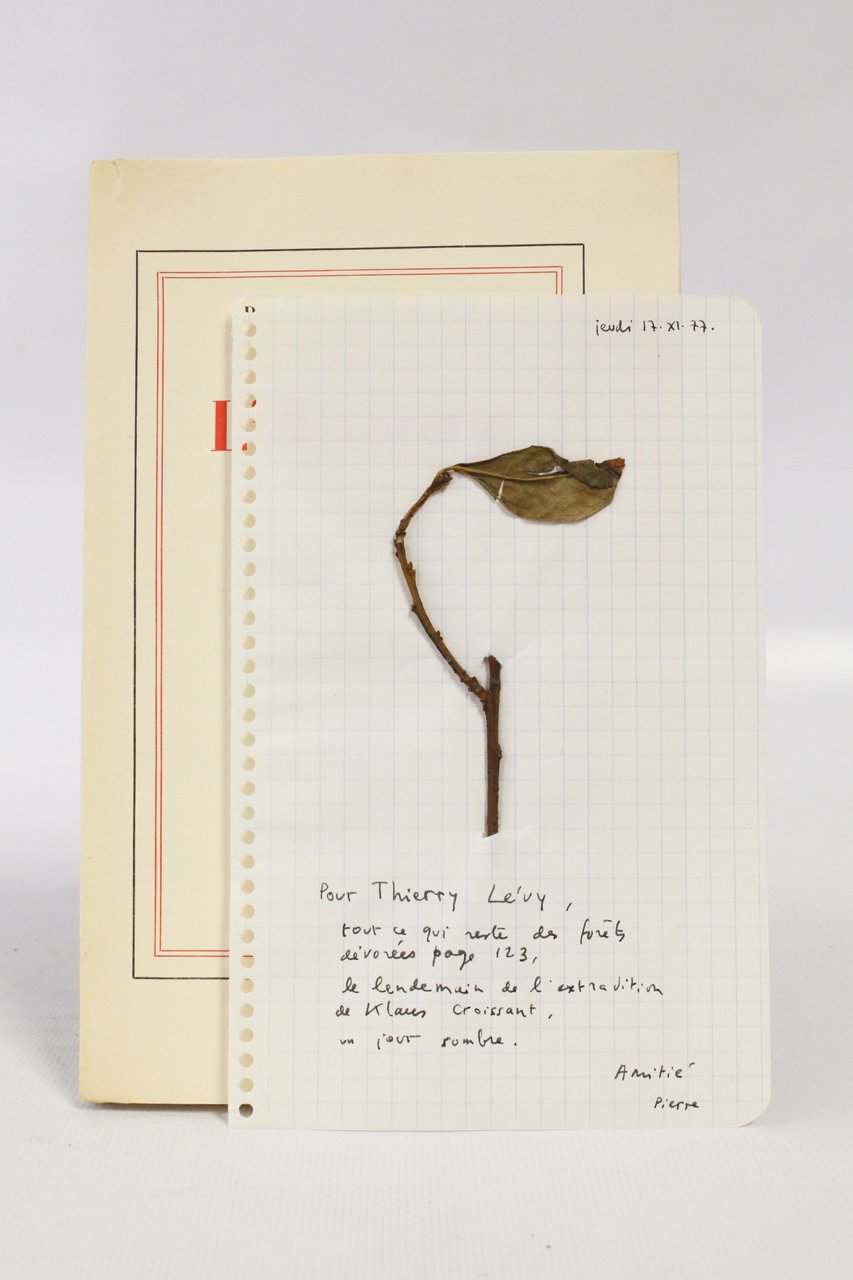 jeudi 17.XI.77.
Pour Thierry Lévy,
tout ce qui reste des forêts
dévorées page 123,
le lendemain de l'extradition
de Klaus Croissant,
un jour sombre.
Amitié
Pierre